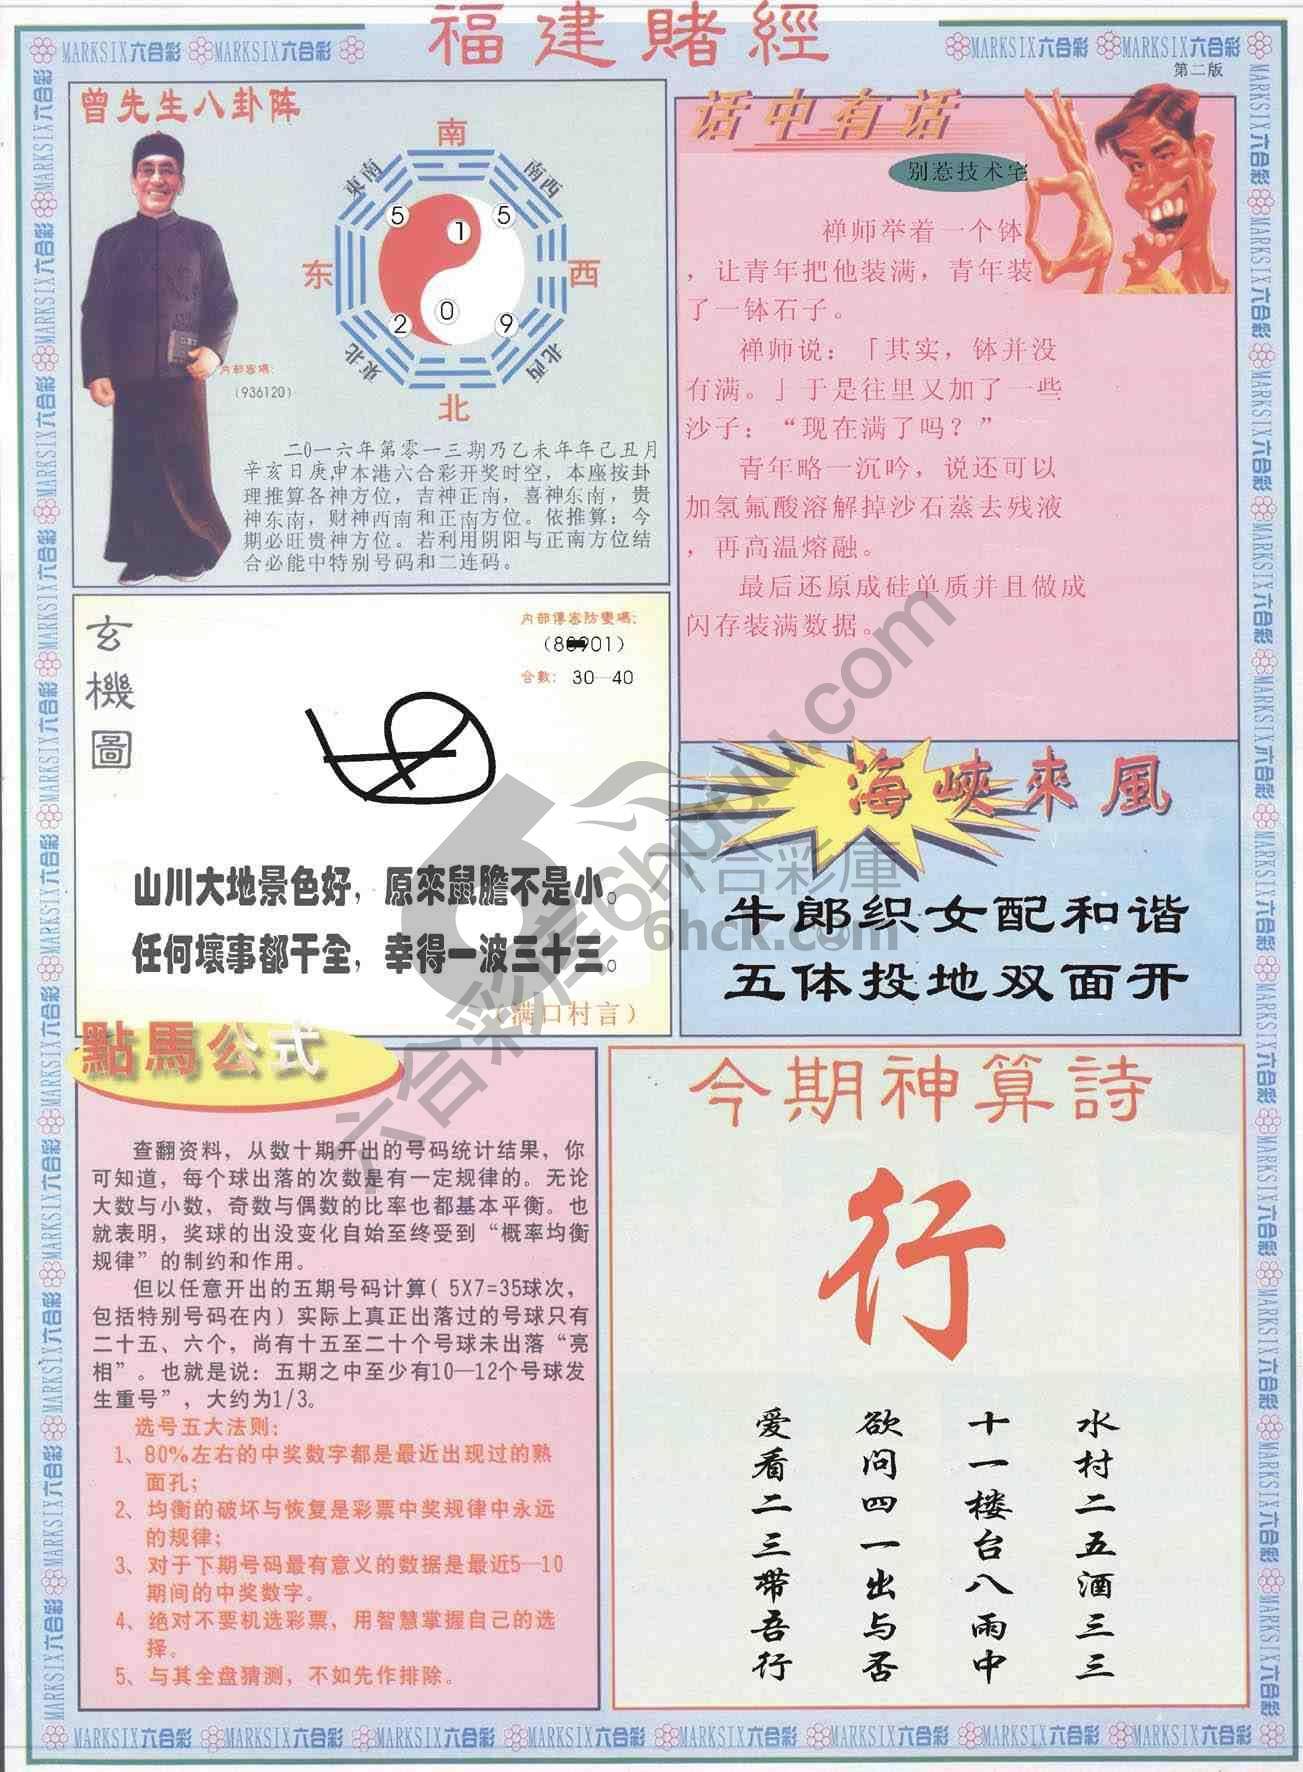 福建賭經
MARKSIX六合彩 MARKSIX六合彩
MARKSIX六合彩 MARKSIX六合彩
第二版
曾先生八卦阵
南
東南
南西
5
1
5
东
西
2
0
9
東北
北西
北
内部密碼:
(936120)
二0一六年第零一三期乃乙未年年己丑月
辛亥日庚申本港六合彩开奖时空，本座按卦
理推算各神方位，吉神正南，喜神东南，贵
神东南，财神西南和正南方位。依推算：今
期必旺贵神方位。若利用阴阳与正南方位结
合必能中特别号码和二连码。
话中有话
别惹技术宅
禅师举着一个钵
，让青年把他装满，青年装
了一钵石子。
禅师说：「其实，钵并没
有满。」于是往里又加了一些
沙子：“现在满了吗？”
青年略一沉吟，说还可以
加氢氟酸溶解掉沙石蒸去残液
，再高温熔融。
最后还原成硅单质并且做成
闪存装满数据。
玄機圖
内部傳密防變碼:
合數: 30—40
山川大地景色好，原來鼠膽不是小。
任何壞事都干全，幸得一波三十三。
（满口村言）
海峽來風
牛郎织女配和谐
五体投地双面开
六合彩庫
6hck.com
六合彩库6huuu.com
點馬公式
查翻资料，从数十期开出的号码统计结果，你
可知道，每个球出落的次数是有一定规律的。无论
大数与小数，奇数与偶数的比率也都基本平衡。也
就表明，奖球的出没变化自始至终受到“概率均衡
规律”的制约和作用。
但以任意开出的五期号码计算( 5X7=35球次，
包括特别号码在内）实际上真正出落过的号球只有
二十五、六个，尚有十五至二十个号球未出落“亮
相”。也就是说：五期之中至少有10—12个号球发
生重号”，大约为1/3。
选号五大法则：
1、80%左右的中奖数字都是最近出现过的熟
面孔；
2、均衡的破坏与恢复是彩票中奖规律中永远
的规律；
3、对于下期号码最有意义的数据是最近5—10
期间的中奖数字。
4、绝对不要机选彩票，用智慧掌握自己的选
择。
5、与其全盘猜测，不如先作排除。
今期神算詩
行
水村二五酒三三
十一楼台八雨中
欲问四一出与否
爱看二三带吾行
MARKSIX六合彩 MARKSIX六合彩 MARKSIX六合彩 MARKSIX六合彩 MARKSIX六合彩 MARKSIX六合彩 MARKSIX六合彩 MARKSIX六合彩